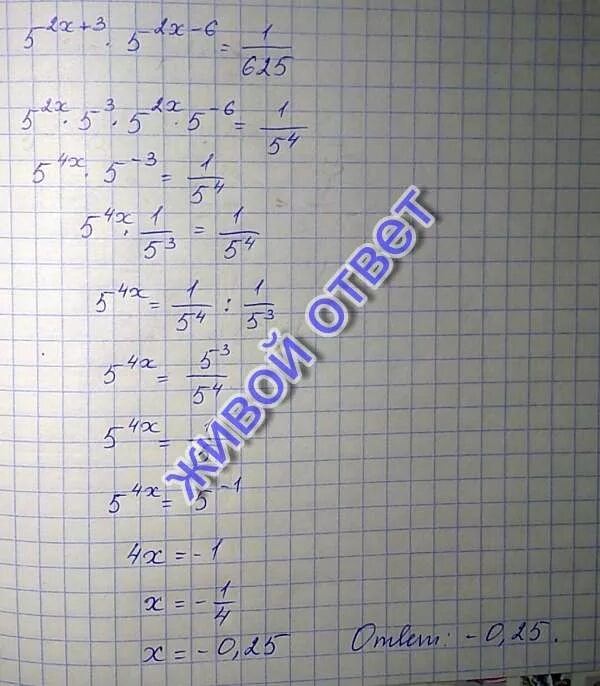 5^{2x+3} · 5^{2x-6} = 1/625
5^{2x} · 5^3 · 5^{2x} · 5^{-6} = 1/5^4
5^{4x} · 5^{-3} = 1/5^4
5^{4x} · 1/5^3 = 1/5^4
5^{4x} = 1/5^4 : 1/5^3
5^{4x} = 5^3/5^4
5^{4x} = 1/5
5^{4x} = 5^{-1}
4x = -1
x = -1/4
x = -0,25 Ответ: -0,25.
ЖИВОЙ ОТВЕТ